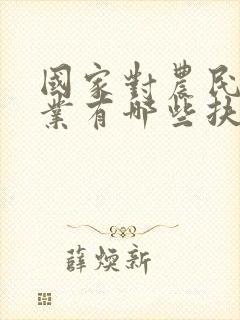 國家對農民
業有哪些扶
薛煥新